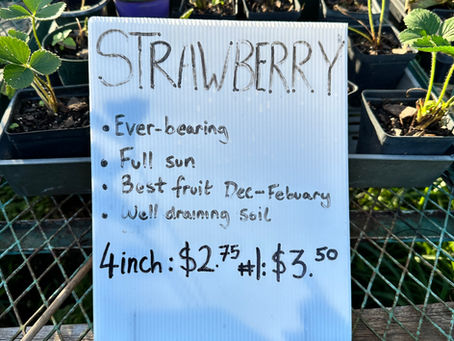 STRAWBERRY
• Ever-bearing
• Full sun
• Best fruit Dec-Febuary
• Well draining soil
4inch: $2.75 #1: $3.50